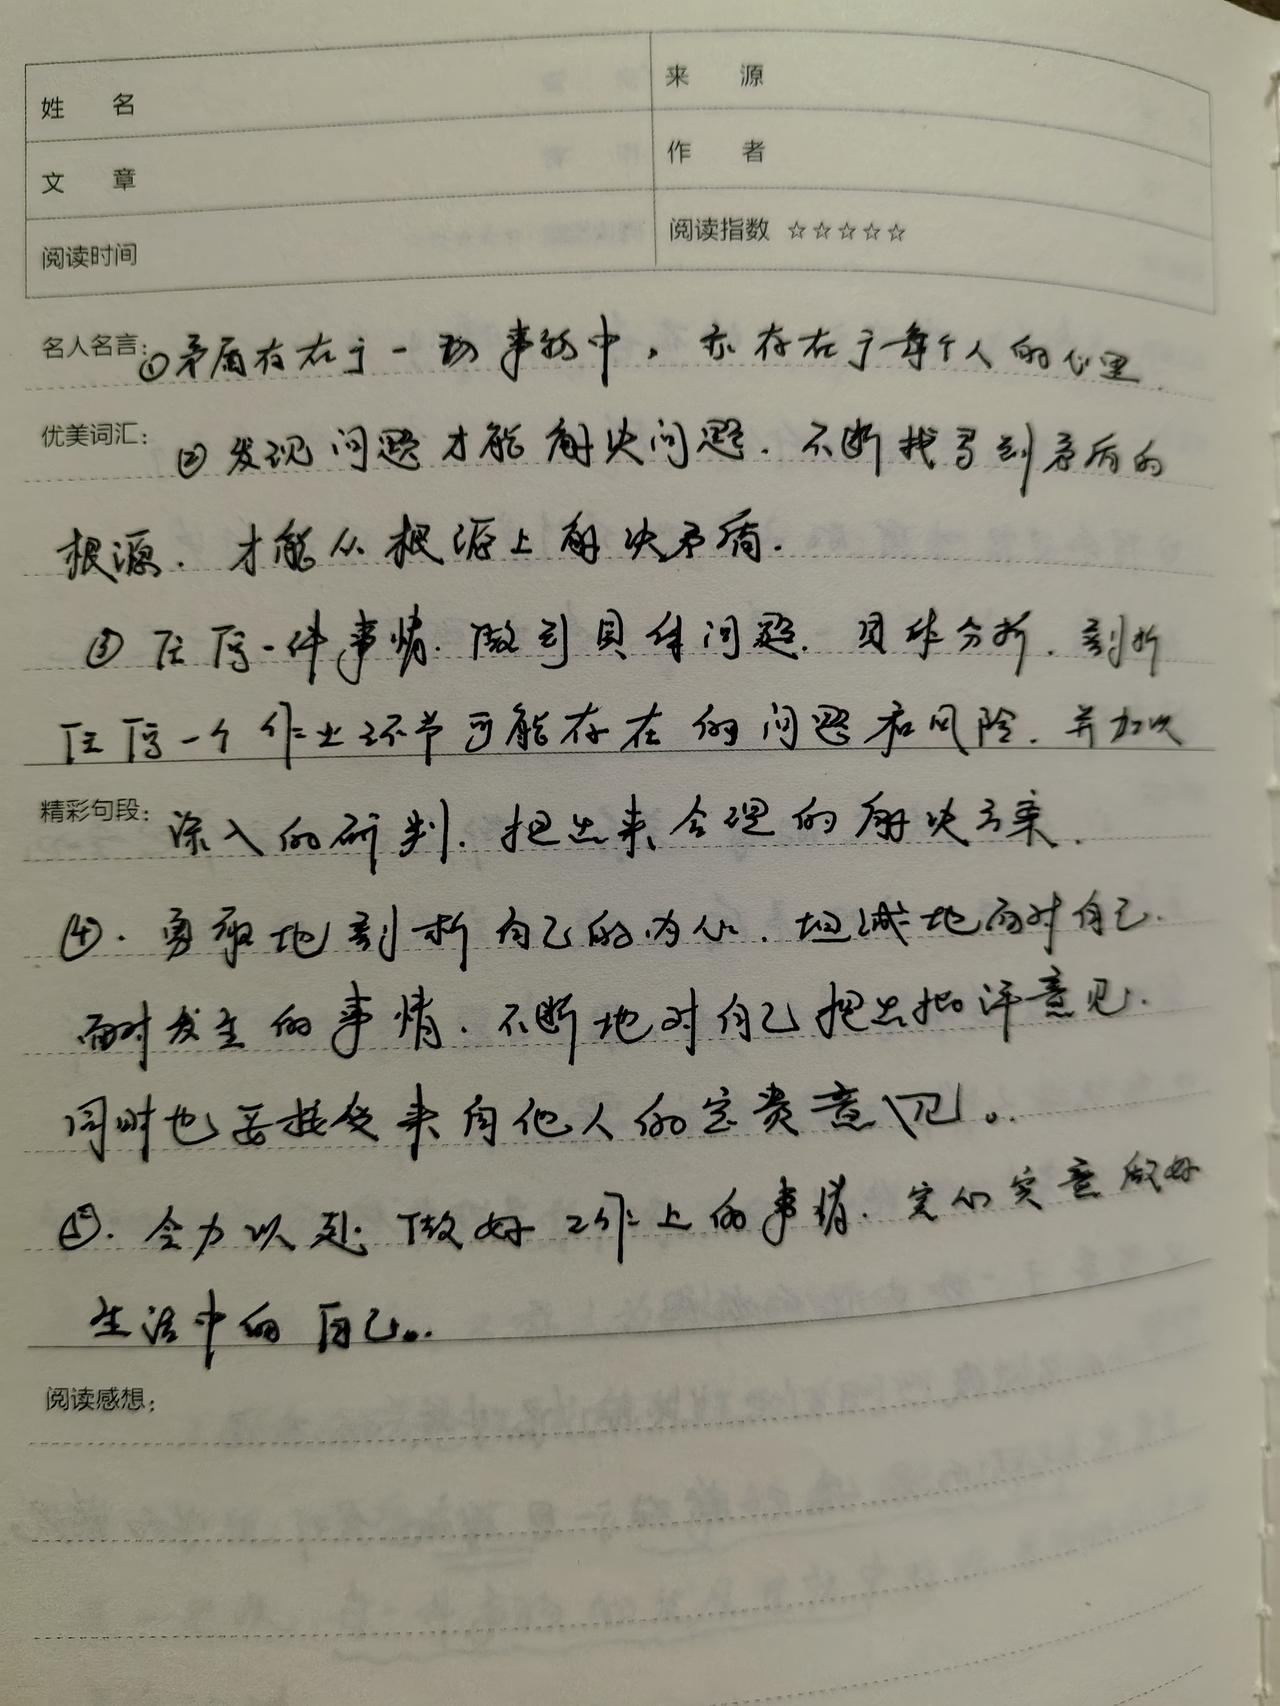 姓 名
来 源
文 章
作 者
阅读时间
阅读指数 ☆☆☆☆☆
名人名言：①矛盾存在于一切事物中，亦存在于每个人的心里
优美词汇：②发现问题才能解决问题．不断找寻到矛盾的
根源．才能从根源上解决矛盾．
③ 一件事情．做到具体问题．具体分析．剖析
一个作业环节可能存在的问题和风险．并加以
精彩句段：深入的研判．提出来合理的解决方案．
④．勇敢地剖析自己的内心．坦诚地面对自己．
面对发生的事情．不断地对自己提出批评意见．
同时也要接受来自他人的宝贵意见。
⑤．全力以赴做好工作上的事情．实意做好
生活中的自己。
阅读感想：